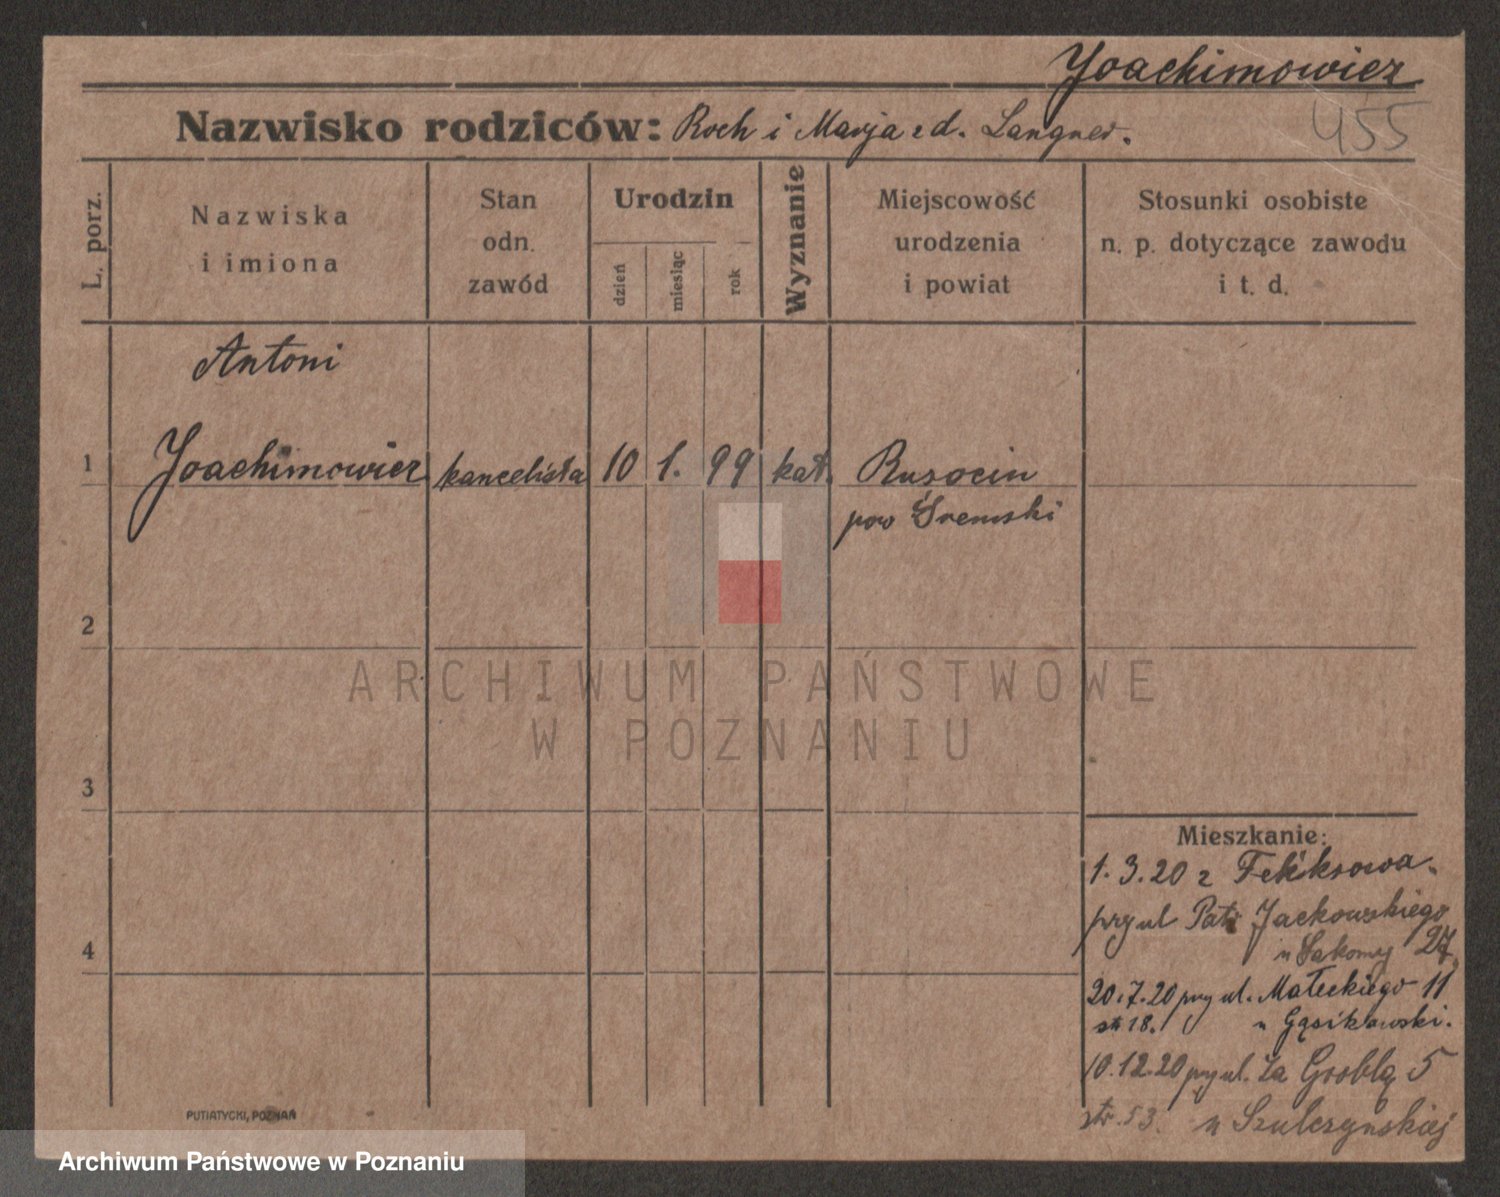 Joachimowicz
455
Nazwisko rodziców: Roch i Marja z d. Langner.
L. porz.
Nazwiska i imiona
Stan odn. zawód
Urodzin
dzień
miesiąc
rok
Wyznanie
Miejscowość urodzenia i powiat
Stosunki osobiste n. p. dotyczące zawodu i t. d.
Antoni
1 Joachimowicz kancelista 10 1. 99 kat. Rusocin
pow Śremski
2
ARCHIWUM PAŃSTWOWE
W POZNANIU
3
Mieszkanie:
1.3.20 z Feliksowa.
przy ul Patr Jackowskiego
u Łakomy 27.
4
20.7.20 przy ul. Małeckiego 11
str 18. u Gąsikowski.
10.12.20 przy ul. Za Groblą 5
str. 53. u Szulczyńskiej
PUTIATYCKI, POZNAŃ
Archiwum Państwowe w Poznaniu